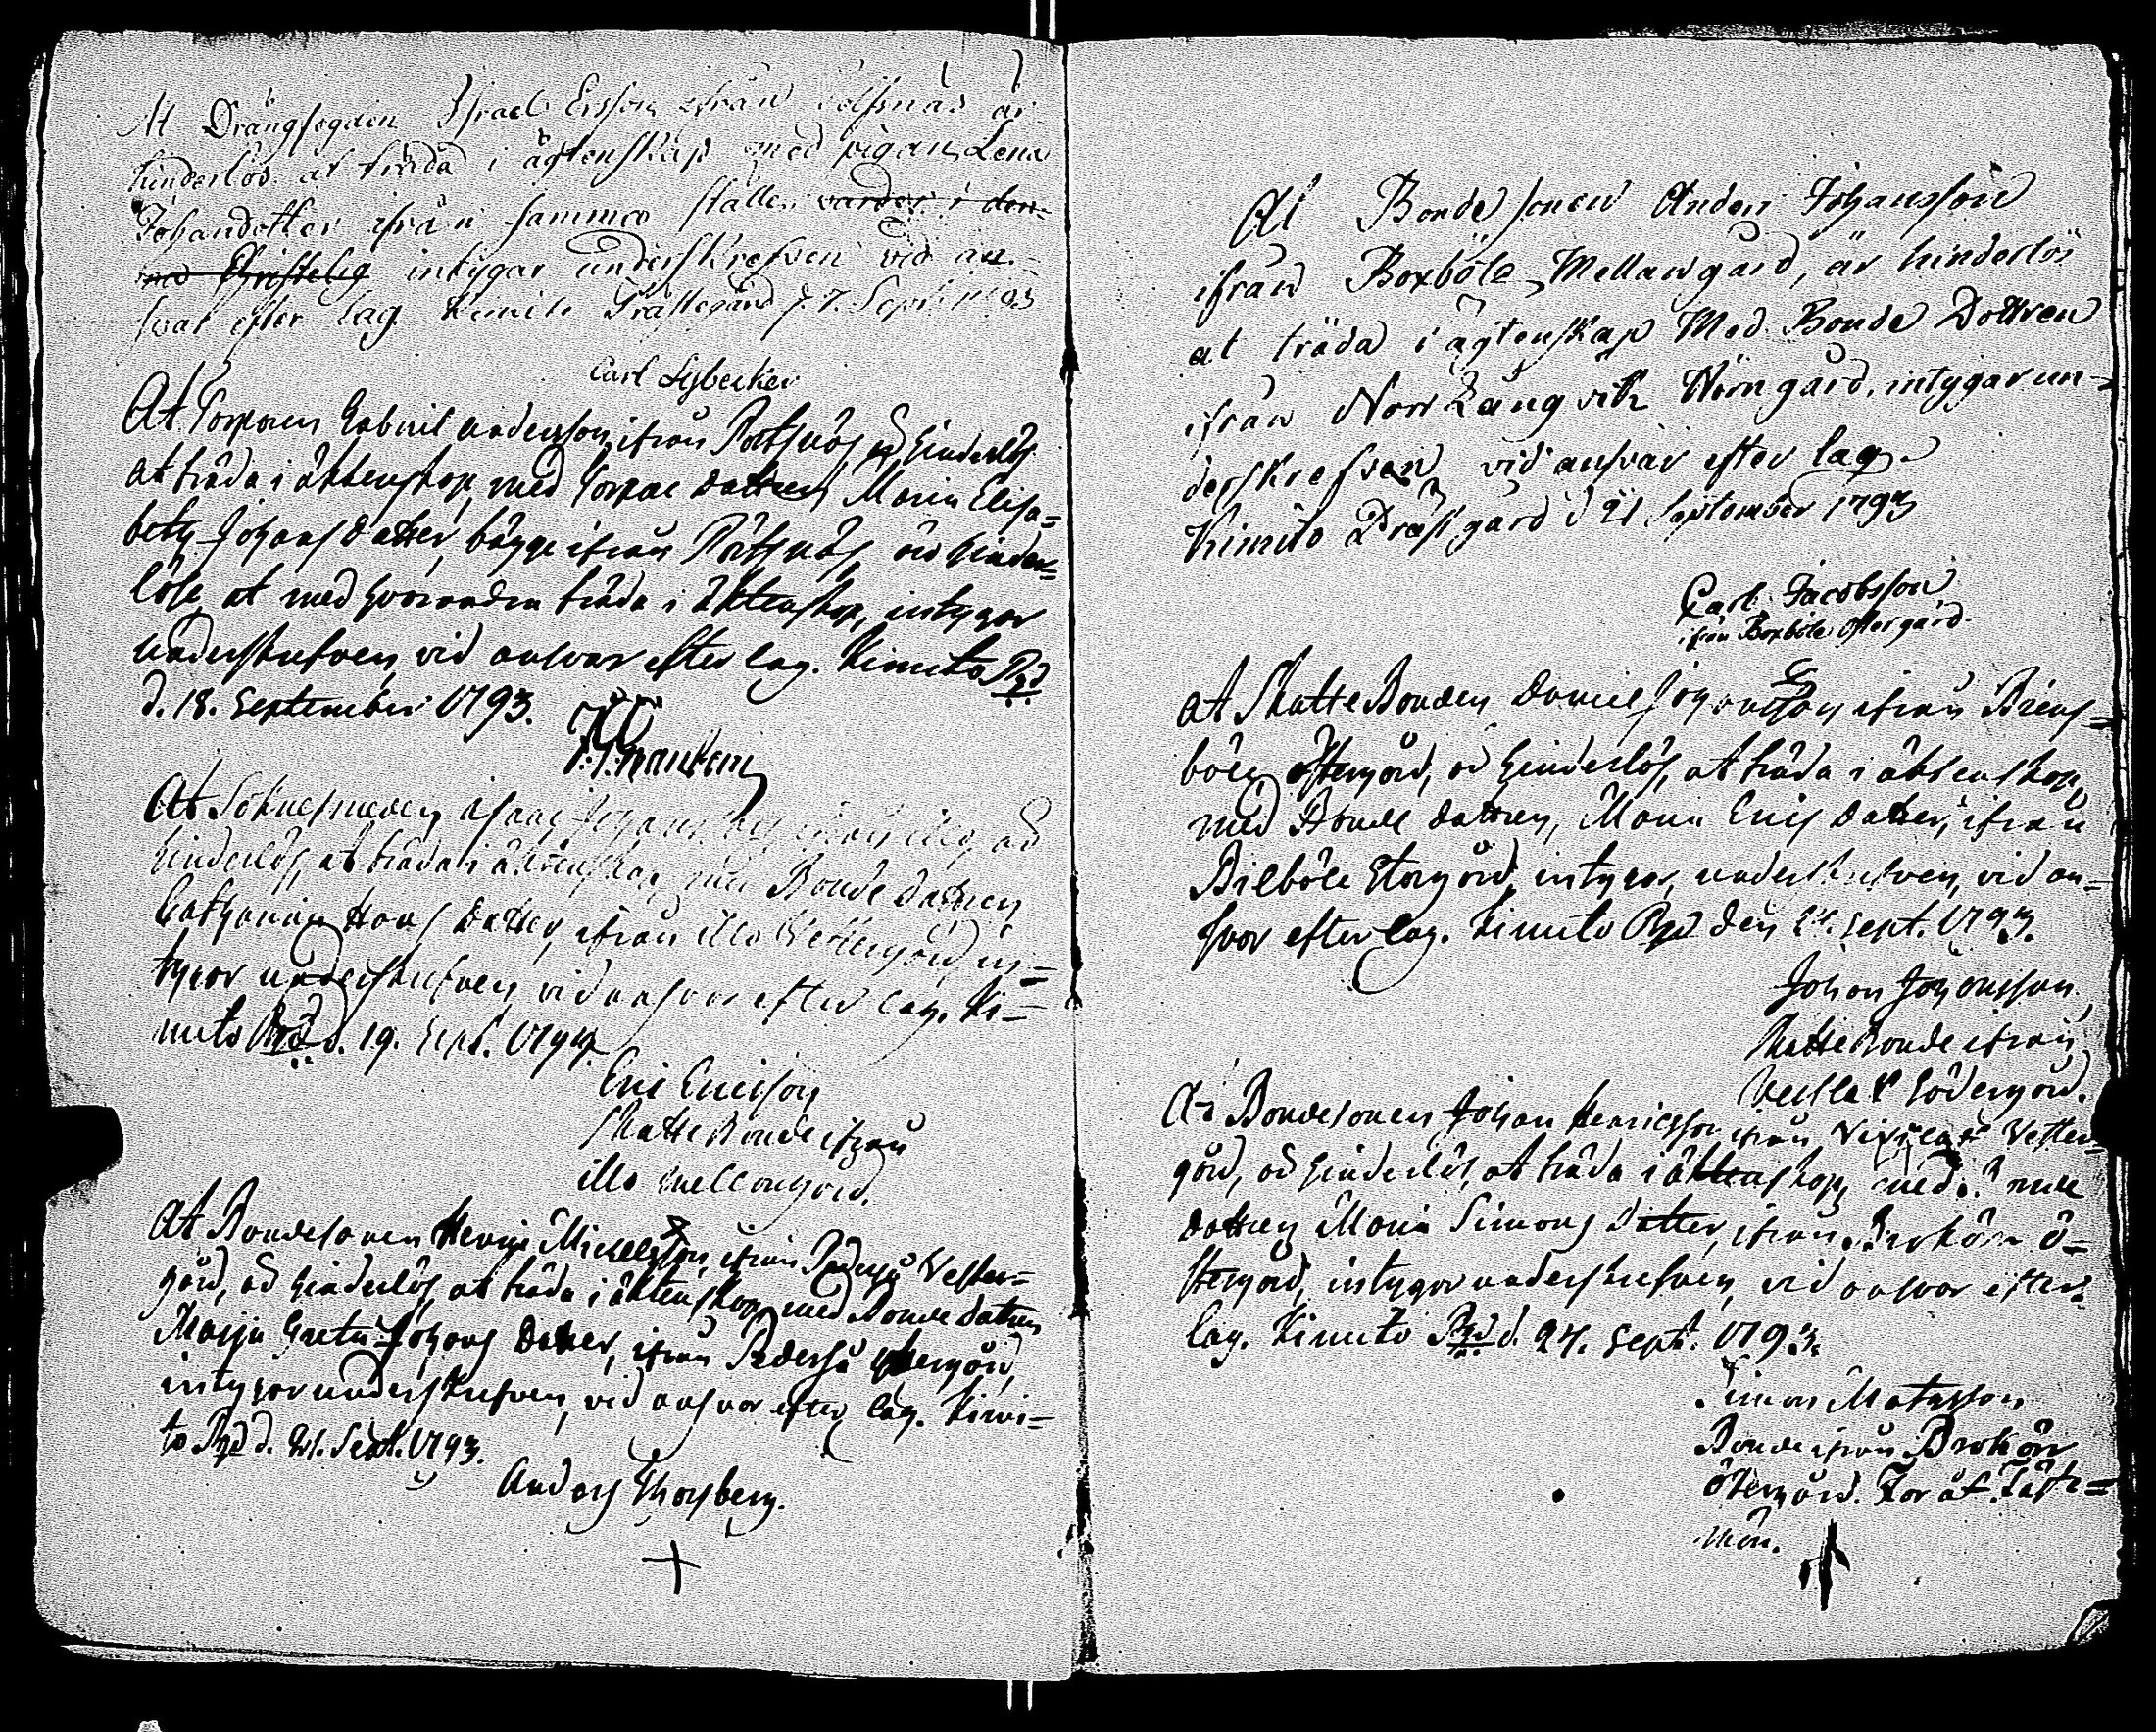 At Drängfogden Israel Ersson ifrån Sölfsnäs är
hinderlös at träda i ägtenskap med pigan Lena
Johandotter ifrån samma ställe, warder i den
Christelig intygar underskrefven vid an-
svar efter lag Kimito Prästegård d 7. Sept: 1793
Carl Lybecker
At Torparen Gabriel Andersson, ifrån Pörtsnäs, är hinderlös
at träda i äktenskap, med Torpare dottren Maria Elisa=
beth Johans Dotter, bägge ifrån Pörtsnäs, äro hinder=
löse, at med hvarandra träda i äktenskap, intygar
underskrefven, vid answar efter lag. Kimito Pgd
d. 18. September 1793.
At Isaac Johansson, ifrån Illo, är
hinderlös, at träda i äktenskap, med Bonde dottren
Catharina Hans Dotter, ifrån Illo Westergård, in=
tygar underskrefven, vid answar efter lag. Ki=
mito Pgd d. 19. Sept. 1793.
Eric Ericsson
Skatte Bonde ifrån
Illo Mellangård.
At Bondesonen Henric Mickelsson, ifrån Pederså Wester=
gård, är hinderlös, at träda i äktenskap, med Bonde dottren
Maija Greta Johans Dotter, ifrån Pederså Östergård,
intygar underskrefven, vid answar efter lag. Kimi=
to Pgd d. 21. Sept. 1793.
Anders Thorsberg.
At Bonde sonen Anders Johansson
ifrån Boxböle Mellangård, är hinderlös
at träda i ägtenskap Med Bonde Dottren
ifrån Norr Långvik Norrgård, intygar un-
derskrefven vid ansvar efter lag.
Kimito Prästgård d 21 September 1793
Carl Jacobsson
ifrån Boxböle Östergård.
At Skatte Bonden Daniel Johansson ifrån
böle Östergård, är hinderlös, at träda i äktenskap,
med Bonde dottren, Maria Erics Dotter, ifrån
Bilböle Storgård, intygar, underskrefven, vid an=
svar efter lag. Kimito Pgd den 24. Sept. 1793.
Johan Johansson,
Skatte Bonde ifrån
Södergård.
At Bondesonen Johan Henricsson ifrån Wester=
gård, är hinderlös, at träda i äktenskap, med Bonde
dottren Maria Simons Dotter, ifrån Brokärr Ö=
stergård, intygar underskrefven, vid answar efter
lag. Kimito Pgd d. 24. Sept. 1793.
Simon Matsson
Bonde ifrån Brokärr
Östergård. För åt. Fäste=
mön.